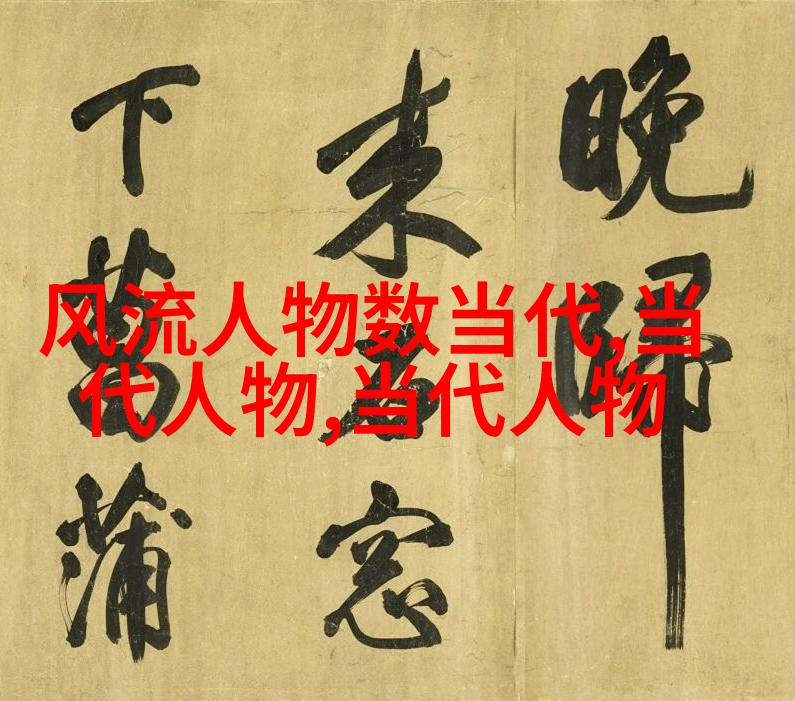 风流人物数当代,当
代人物,当代人物
晚歸
来窓
下菖蒲